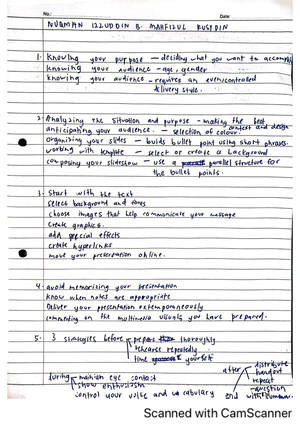 No.:
Date:
NURMAN IZZUDDIN B. MAHFIZUL RUSYDIN
1. Knowing your purpose – deciding what you want to accomplish
knowing your audience - age, gender
knowing your audience – requires an even/controlled
delivery style.
2. Analyzing the situation and purpose – making the best
content and design
anticipating your audience. – selection of colour.
organizing your slides – builds bullet point using short phrases.
working with template – select or create a background
composing your slideshow – use a parallel structure for
the bullet points.
3. Start with the text
select background and fonts
choose images that help communicate your message
create graphics.
add special effects
create hyperlinks
move your presentation online.
4. avoid memorizing your presentation
know when notes are appropriate
Deliver your presentation extemporaneously
commenting on the multimedia visuals you have prepared.
5. 3 strategies before
prepare thoroughly
rehearse repeatedly
time yourself
after
distribute
handout
repeat
question
end with
during
maintain eye contact
show enthusiasm
control your voice and vocabulary
Scanned with CamScanner